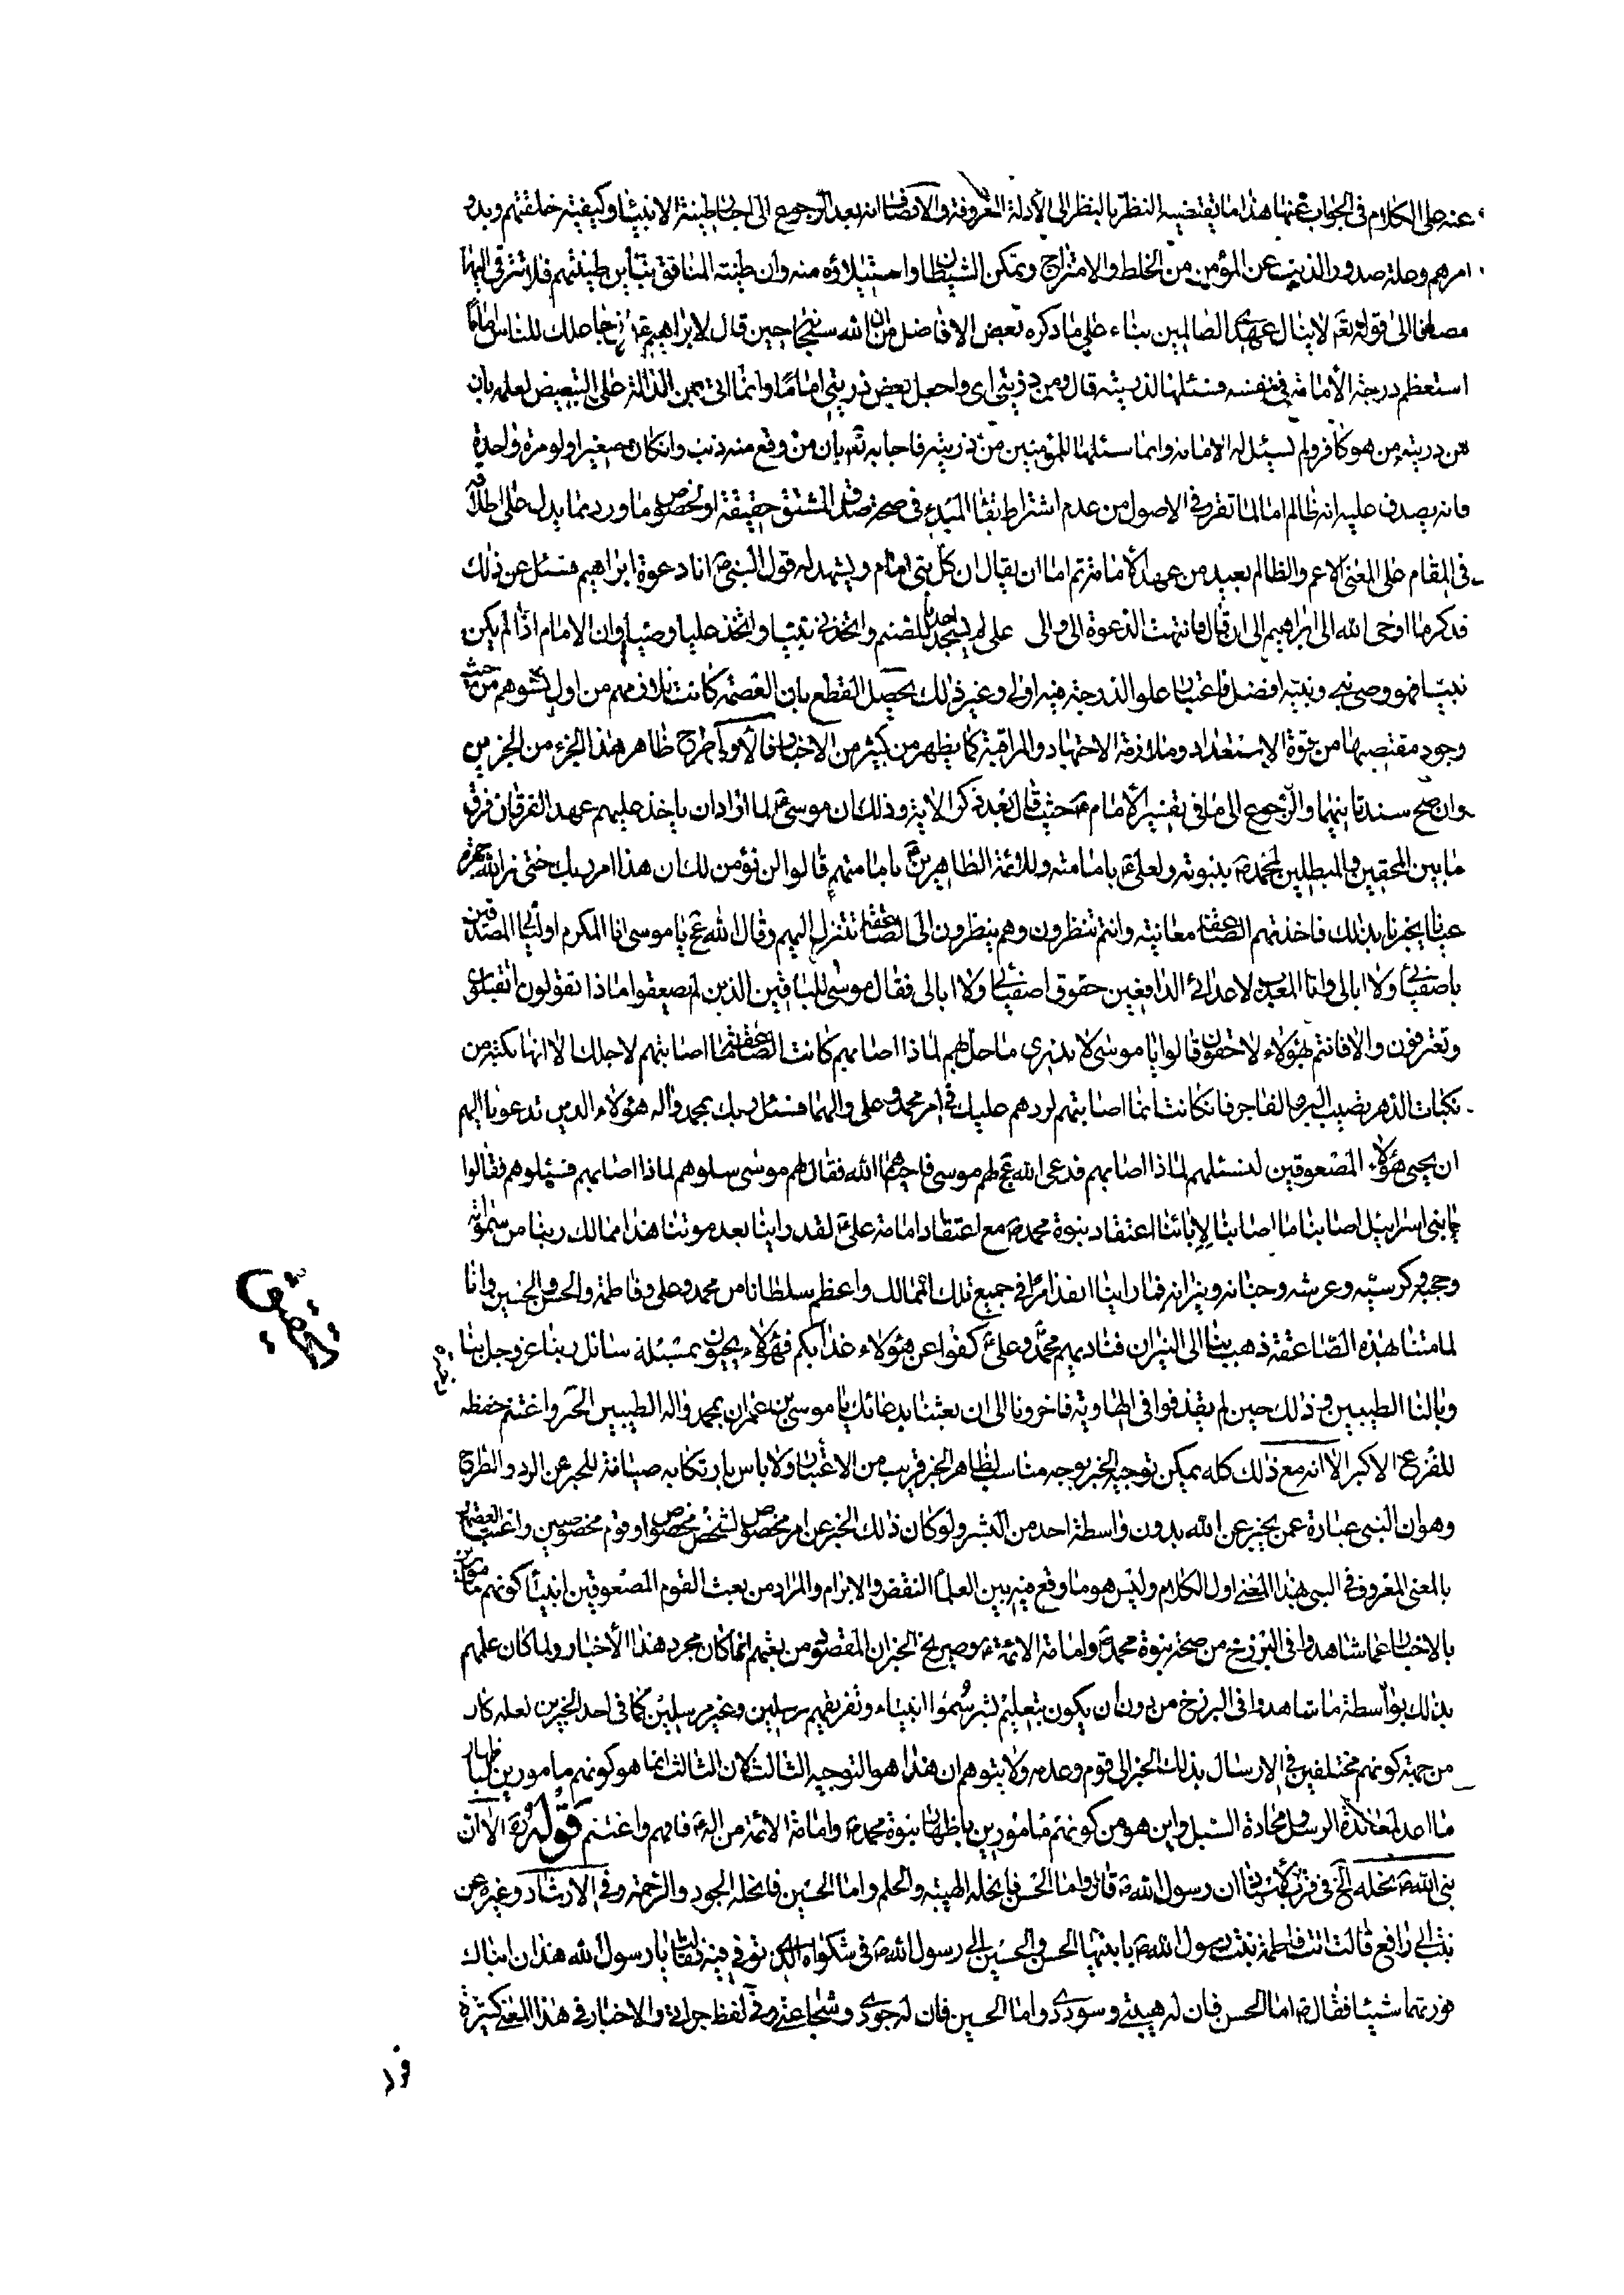 عنه على الكلام فى الجواب عنها هذا ما يقتضيه النظر بالنظر الى الأدلة المعروفة والانصاف انه بعد الرجوع الى اخبار طينة الانبياء وكيفية خلقتهم وبدو
امرهم وعلة صدور الذنب عن المؤمن من الخلط والامتزاج وتمكن الشيطان واستيلاؤه منه وان طينته المنافق يتباين طينتهم فلا تترقى اليها
مصافا الى قوله تع لا ينال عهدى الظالمين بناء على ما ذكره بعض الافاضل من ان الله سبحانه حين قال لابراهيم ع انى جاعلك للناس اماما
استعظم درجة الأمامة فى نفسه فسئلها لذريته قال ومن ذريتى اى واجعل بعض ذريتى اماما وانما اتى بمن الدالة على التبعيض لعلمه بان
من ذريته من هو كافر ولم يسئل له الامامة وانما سئلها للمؤمنين من ذريته فاجابه تع بان من وقع منه ذنب وان كان صغيرا ولو مرة واحدة
فانه يصدق عليه انه ظالم اما لما تقرر فى الاصول من عدم اشتراط بقاء المبدء فى صحة صدق المشتق حقيقة او لخصوص ما ورد مما يدل على اطلاقه
فى المقام على المعنى الاعم والظالم بعيد من عهد الأمامة ثم اما ان يقال ان كل نبى امام ويشهد له قول النبى ص انا دعوة ابراهيم فسئل عن ذلك
فذكر ما اوحى الله الى ابراهيم الى ان قال فانتهت الدعوة الى والى على لم يسجد احدنا للصنم واتخذنى نبيا واتخذ عليا وصيا وان الامام اذا لم يكن
نبيا فهو وصى نبى ونبيه افضل فاعتبار علو الدرجة فيه اولى وغير ذلك يحصل القطع بان العصمة كانت تلازمهم من اول نشوهم من حيث
وجود مقتضيها من قوة الاستعداد وملازمة الاجتهاد والمراقبة كما يظهر من كثير من الاخبار فالأولى طرح ظاهر هذا الجزء من الخبرين
وان صح سند ثانيهما والرجوع الى ما فى تفسير الأمام ع حيث قال بعد ذكر الاية وذلك ان موسى ع لما اراد ان ياخذ عليهم عهد الفرقان فرق
ما بين المحقين والمبطلين لمحمد ص بنبوته ولعلى ع بامامته وللائمة الطاهرين ع بامامتهم قالوا لن نؤمن لك ان هذا امر ربك حتى نرى الله جهرة
عيانا يخبرنا بذلك فاخذتهم الصاعقة معاينة وانتم تنظرون وهم ينظرون الى الصاعقة تتنزل اليهم وقال الله عج يا موسى انا المكرم اوليائى المصدقين
باصفيائى ولا ابالى وانا المعذب لاعدائى الدافعين حقوق اصفيائى ولا ابالى فقال موسى للباقين الذين لم يصعقوا ماذا تقولون اتقبلون
وتعترفون والا فانتم بهؤلاء لاحقون قالوا يا موسى لا ندرى ما حل بهم لماذا اصابهم كانت الصاعقة ما اصابتهم لاجلك الا انها نكبة من
نكبات الدهر تصيب البر والفاجر فان كانت انما اصابتهم لردهم عليك فى امر محمد وعلى والهما فسئل ربك بمحمد واله هؤلاء الذين تدعونا اليهم
ان يحيى هؤلاء المصعوقين لنسئلهم لماذا اصابهم فدعى الله عج لهم موسى فاحياهم الله فقال لهم موسى سلوهم لماذا اصابهم فسئلوهم فقالوا
يا بنى اسرائيل اصابنا ما اصابنا لإبائنا اعتقاد نبوة محمد ص مع اعتقاد امامة على ع لقد راينا بعد موتنا هذا ممالك ربنا من سمواته
وحجبه وكرسيه وعرشه وجنانه ونيرانه فما راينا انفذ امرا فى جميع تلك الممالك واعظم سلطانا من محمد وعلى وفاطمة والحسن والحسين وانا
لما متنا بهذه الصاعقة ذهب بنا الى النيران فناديهم محمد وعلى ع كفوا عن هؤلاء عذابكم فهؤلاء يحيون بمسئلة سائل ربنا عز وجل بنا
وبالنا الطيبين وذلك حين لم يقذفوا فى الهاوية فاخرونا الى ان بعثنا بدعائك يا موسى بن عمران بمحمد واله الطيبين الخبر واغتنم حفظه
للفزع الاكبر الا انه مع ذلك كله يمكن توجيه الخبر بوجه مناسب لظاهر الخبر قريب من الاعتبار ولا باس بارتكابه صيانة للخبر عن الرد والطرح
وهو ان النبى عبارة عمن يخبر عن الله بدون واسطة احد من البشر ولو كان ذلك الخبر عن امر مخصوص لشخص مخصوص او قوم مخصوصين واعتبار العصمة
بالمعنى المعروف فى النبى بهذا المعنى اول الكلام وليس هو ما وقع فيه بين العلماء النقض والابرام والمراد من بعث القوم المصعوقين انبياء كونهم مامورين
بالاخبار عما شاهدوا فى البرزخ من صحة نبوة محمد ص وامامة الائمة ع وصريح الخبر ان المقصود من بعثهم انما كان مجرد هذا الأخبار ولما كان علمهم
بذلك بواسطة ما شاهدوا فى البرزخ من دون ان يكون بتعليم بشر سموا انبياء وتفريقهم مرسلين وغير مرسلين كما فى احد الخبرين لعله كان
من جهة كونهم مختلفين فى الارسال بذلك الخبر الى قوم وعدمه ولا يتوهم ان هذا هو التوجيه الثالث لان الثالث انما هو كونهم مامورين باظهار
ما اعد لمعاندة الرسل ومحادة السبل واين هو من كونهم مامورين باظهار نبوة محمد ص وامامة الائمة من اله ع فافهم واغتنم قوله ره الا ان
نبى الله ص نحله الخ فى قرب الاسناد ان رسول الله ص قال واما الحسن فانحله الهيبة والحلم واما الحسين فانحله الجود والرحمة وفى الارشاد وغيره عن
بنت ابى رافع قالت اتت فاطمة بنت رسول الله ص بابنيها الحسن والحسين الى رسول الله ص فى شكواه الذى توفى فيه فقالت يا رسول الله هذان ابناك
فورثهما شيئا فقال ص اما الحسن فان له هيبتى وسوددى واما الحسين فان له جودى وشجاعتى وفى لفظ جراتى والاخبار فى هذا المعنى كثيرة